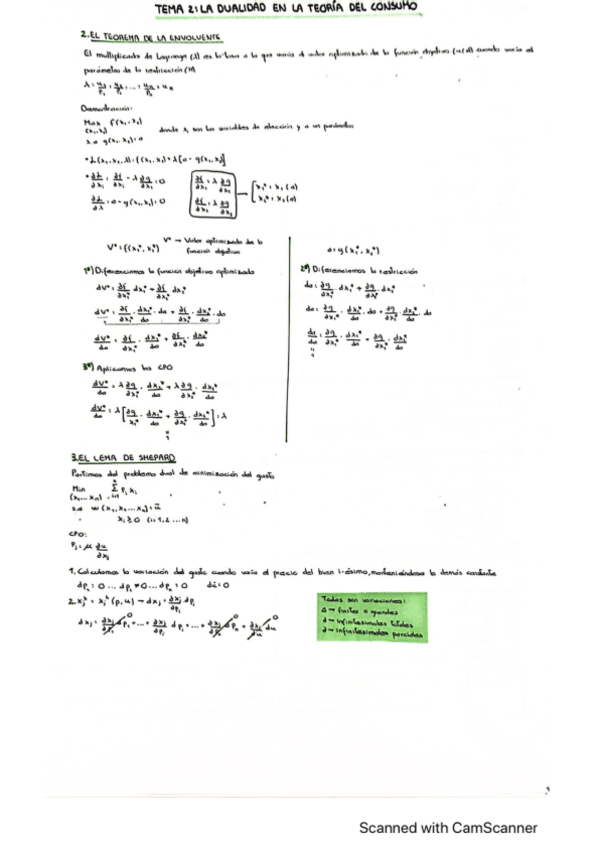 TEMA 2: LA DUALIDAD EN LA TEORÍA DEL CONSUMO
2. EL TEOREMA DE LA ENVOLVENTE
El multiplicador de Lagrange (λ) es la tasa a la que varía el valor optimizado de la función objetivo (u(x)) cuando varía el
parámetro de la restricción (M)
Demostración:
Max f(x₁, x₂)
(x₁, x₂) donde xᵢ son las variables de elección y a un parámetro
s.a g(x₁, x₂) = a
• L(x₁, x₂, λ) = f(x₁, x₂) + λ[a - g(x₁, x₂)]
• ∂L/∂xᵢ = ∂f/∂xᵢ - λ ∂g/∂xᵢ = 0
∂L/∂λ = a - g(x₁, x₂) = 0
∂f/∂x₁ = λ ∂g/∂x₁
∂f/∂x₂ = λ ∂g/∂x₂
x₁* = x₁(a)
x₂* = x₂(a)
V* = f(x₁*, x₂*)
V* → Valor optimizado de la
función objetivo
1º) Diferenciamos la función objetivo optimizada
dV* = ∂f/∂x₁* dx₁* + ∂f/∂x₂* dx₂*
dV* = ∂f/∂x₁* · dx₁*/da · da + ∂f/∂x₂* · dx₂*/da · da
dV*/da = ∂f/∂x₁* · dx₁*/da + ∂f/∂x₂* · dx₂*/da
a = g(x₁*, x₂*)
2º) Diferenciamos la restricción
da = ∂g/∂x₁* · dx₁* + ∂g/∂x₂* · dx₂*
da = ∂g/∂x₁* · dx₁*/da · da + ∂g/∂x₂* · dx₂*/da · da
da/da = ∂g/∂x₁* · dx₁*/da + ∂g/∂x₂* · dx₂*/da
1
3º) Aplicamos las CPO
dV*/da = λ ∂g/∂x₁* · dx₁*/da + λ ∂g/∂x₂* · dx₂*/da
dV*/da = λ [∂g/∂x₁* · dx₁*/da + ∂g/∂x₂* · dx₂*/da] = λ
1
3. EL LEMA DE SHEPARD
Partimos del problema dual de minimización del gasto
Min Σ pᵢ xᵢ
(x₁...xₙ) i=1
s.a u(x₁, x₂...xₙ) = ū
xᵢ ≥ 0 (i = 1, 2...n)
CPO:
pᵢ = μ ∂u/∂xᵢ
1. Calculamos la variación del gasto cuando varía el precio del bien i-ésimo, manteniéndose lo demás constante
dp₁ = 0 ... dpᵢ ≠ 0 ... dpₙ = 0 dū = 0
Todas son variaciones:
Δ → finitas o grandes
d → infinitesimales totales
∂ → infinitesimales parciales
Scanned with CamScanner